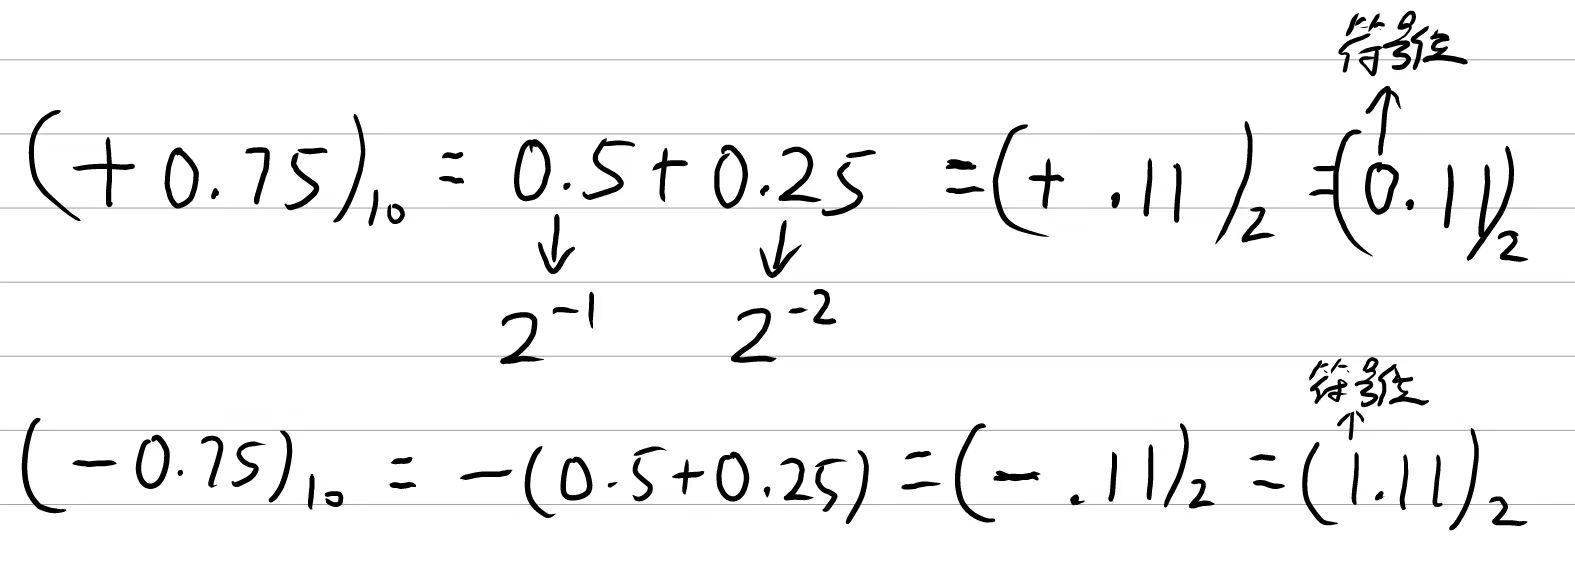 符号位
(+0.75)₁₀ = 0.5+0.25 =(+ .11)₂ =(0.11)₂
↓ ↓
2⁻¹ 2⁻²
符号位
(-0.75)₁₀ = -(0.5+0.25) =(- .11)₂ =(1.11)₂